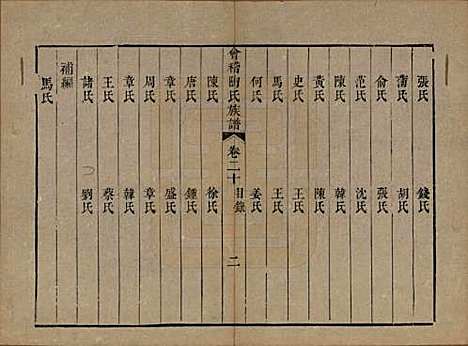 張氏 錢氏
蕭氏 胡氏
俞氏 張氏
范氏 沈氏
陳氏 韓氏
黃氏 陳氏
史氏 王氏
馬氏 王氏
何氏 姜氏
會稽陶氏族譜 卷二十 目錄 二
陳氏 徐氏
唐氏 鍾氏
章氏 盛氏
周氏 章氏
章氏 韓氏
王氏 蔡氏
諸氏 劉氏
補編
馬氏